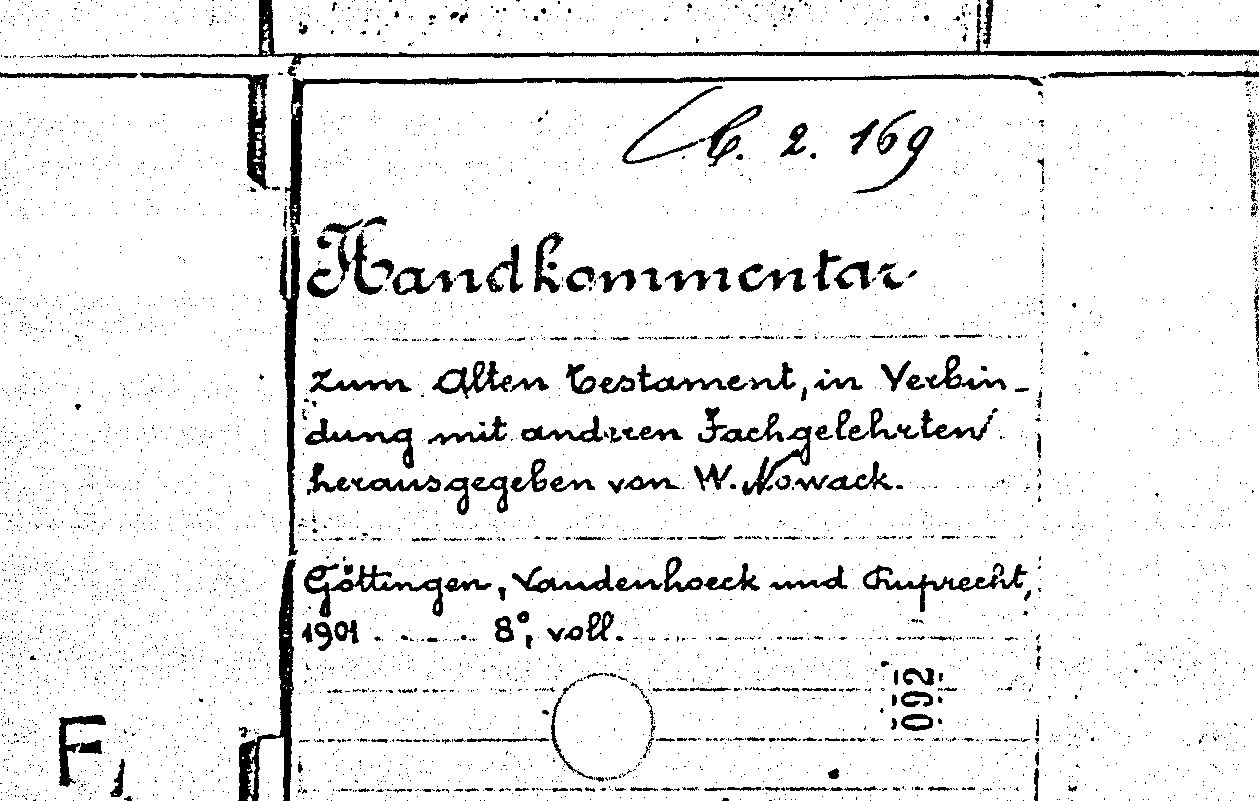 C. 2. 169
Handkommentar
zum Alten Testament, in Verbin-
dung mit anderen Fachgelehrten
herausgegeben von W. Nowack.
Göttingen, Vandenhoeck und Ruprecht,
1901 . . . . 8°, voll.
092
F,